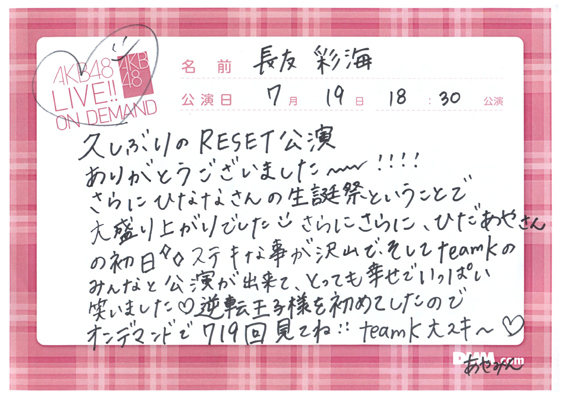 AKB48
LIVE!!
ON DEMAND
AKB
48
名前 長友 彩海
公演日 7月 19日 18:30 公演
久しぶりのRESET公演
ありがとうございました〜!!!!
さらにひななさんの生誕祭ということで
大盛り上がりでした さらにさらに、ひだあやさん
の初日 ステキな事が沢山で、そしてteamKの
みんなと公演が出来て、とっても幸せでいっぱい
笑いました♡逆転王子様を初めてしたので
オンデマンドで719回見てね!! teamK大スキ〜♡
DMM.com
あやみん